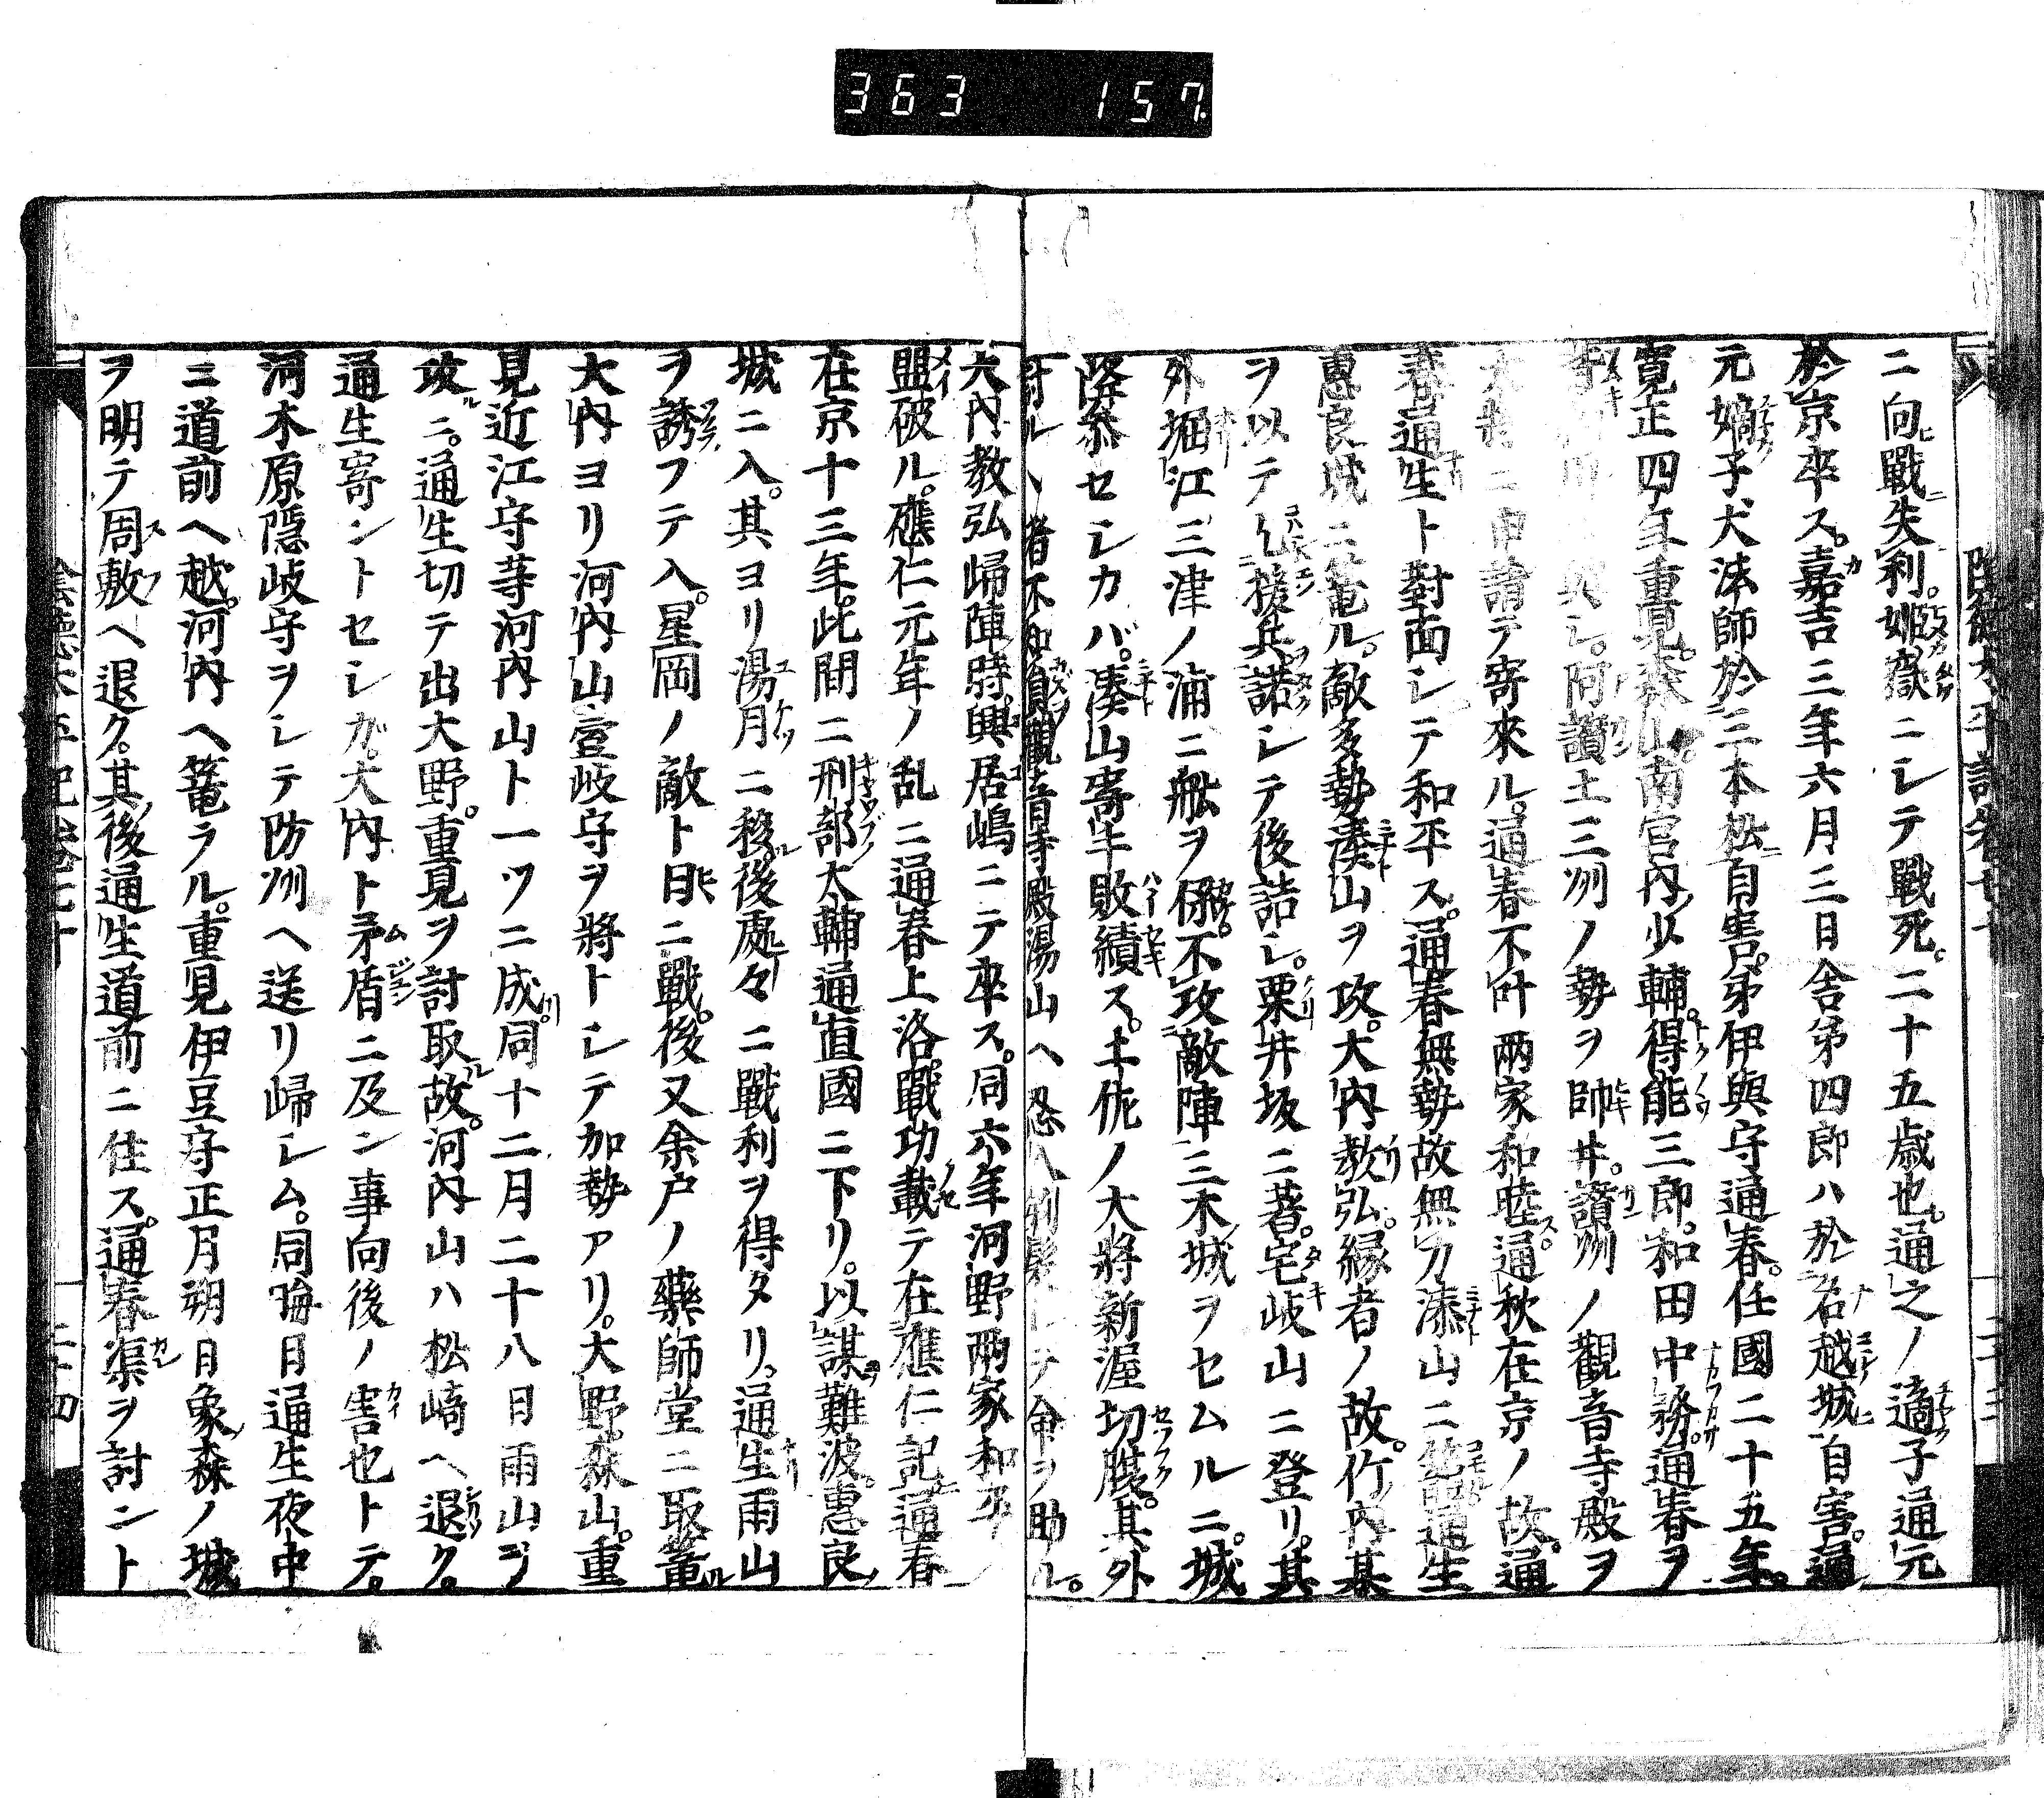 363 157
ニ向戰失利。姫嶽ニシテ戰死。二十五歳也。通之ノ適子通元
於京卒ス。嘉吉三年六月三日舎弟四郎ハ於名越城自害。通
元嫡子犬法師於三本松自害。弟伊與守通春。任國二十五年。
寛正四年重見。森山南宮内少輔。得能三郎。和田中務。通春ヲ
シ。阿讃土三洲ノ勢ヲ帥井。讃洲ノ觀音寺殿ヲ
大將ニ申請テ寄來ル。通春不叶兩家和睦ス。通秋在京ノ故。通
春通生ト對面シテ和平ス。通春無勢故無力湊山ニ籠。通生
惠良城ニ篭ル。敵多勢湊山ヲ攻。大内教弘。縁者ノ故。竹内基
ヲ以テ乞援兵。諾シテ後詰シ。栗井坂ニ著。宅岐山ニ登リ。其
外堀江三津ノ浦ニ舩ヲ。不攻敵陣三木城ヲセムルニ。城
降參セシカバ。湊山寄手敗績ス。土佐ノ大將新渥切腹。其外
者不知負觀音寺殿湯山ヘヲ助ル。
大内教弘歸陣時。興居嶋ニテ卒ス。同六年河野兩家和平ノ
盟破ル。應仁元年ノ乱ニ通春上洛。戰功載テ在應仁記。通春
在京十三年。此間ニ刑部太輔通直國ニ下リ。以謀難波。惠良ノ
城ニ入。其ヨリ湯月ニ移ル。後處々ニ戰利ヲ得タリ。通生雨山
ヲ誘フテ入。星岡ノ敵ト日ニ戰。後又余戸ノ藥師堂ニ取篭ル
大内ヨリ河内山壹岐守ヲ將トシテ加勢アリ。大野。森山。重
見近江守等河内山ト一ツニ成。同十二月二十八日雨山ヲ
攻ルニ。通生切テ出大野。重見ヲ討取ル故。河内山ハ松﨑ヘ退ク。
通生寄ントセシガ。大内ト矛盾ニ及ン事向後ノ害也トテ。
河木原隱岐守ヲシテ防洲ヘ送リ歸シム。同晦日通生夜中
ニ道前ヘ越。河内ヘ篭ラル。重見伊豆守正月朔日象森ノ城
ヲ明テ周敷ヘ退ク。其後通生道前ニ住ス。通春渠ヲ討ント
二十四